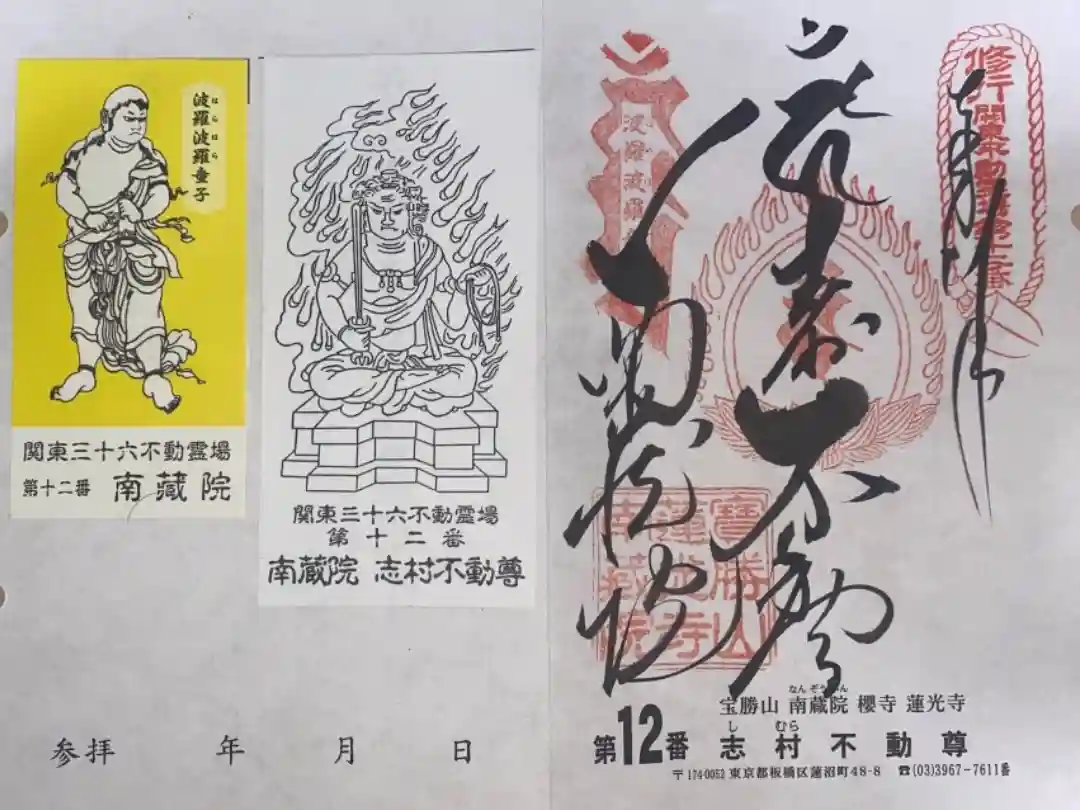 はらはら
波羅波羅童子
関東三十六不動霊場
第十二番 南藏院
関東三十六不動霊場
第十二番
南蔵院 志村不動尊
参拝 年 月 日
奉拝
修行関東不動霊場第十二番
波羅波羅
南蔵院
寶勝山
蓮光寺
南藏院
なんぞういん
宝勝山 南蔵院 櫻寺 蓮光寺
し むら
第12番 志村不動尊
〒174-0052 東京都板橋区蓮沼町48-8 ☎(03)3967-7611番